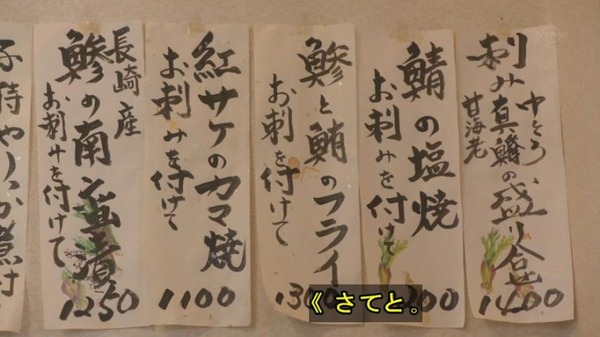 中とろ
刺み真鯵の盛り合せ
甘海老
1400
鯖の塩焼
お刺みを付けて
200
鯵と鮪のフライ
お刺を付けて
130
紅サケのカマ焼
お刺みを付けて
1100
長崎産
鯵の南蛮漬
お刺みを付けて
1250
子持やりいか煮付
《さてと。